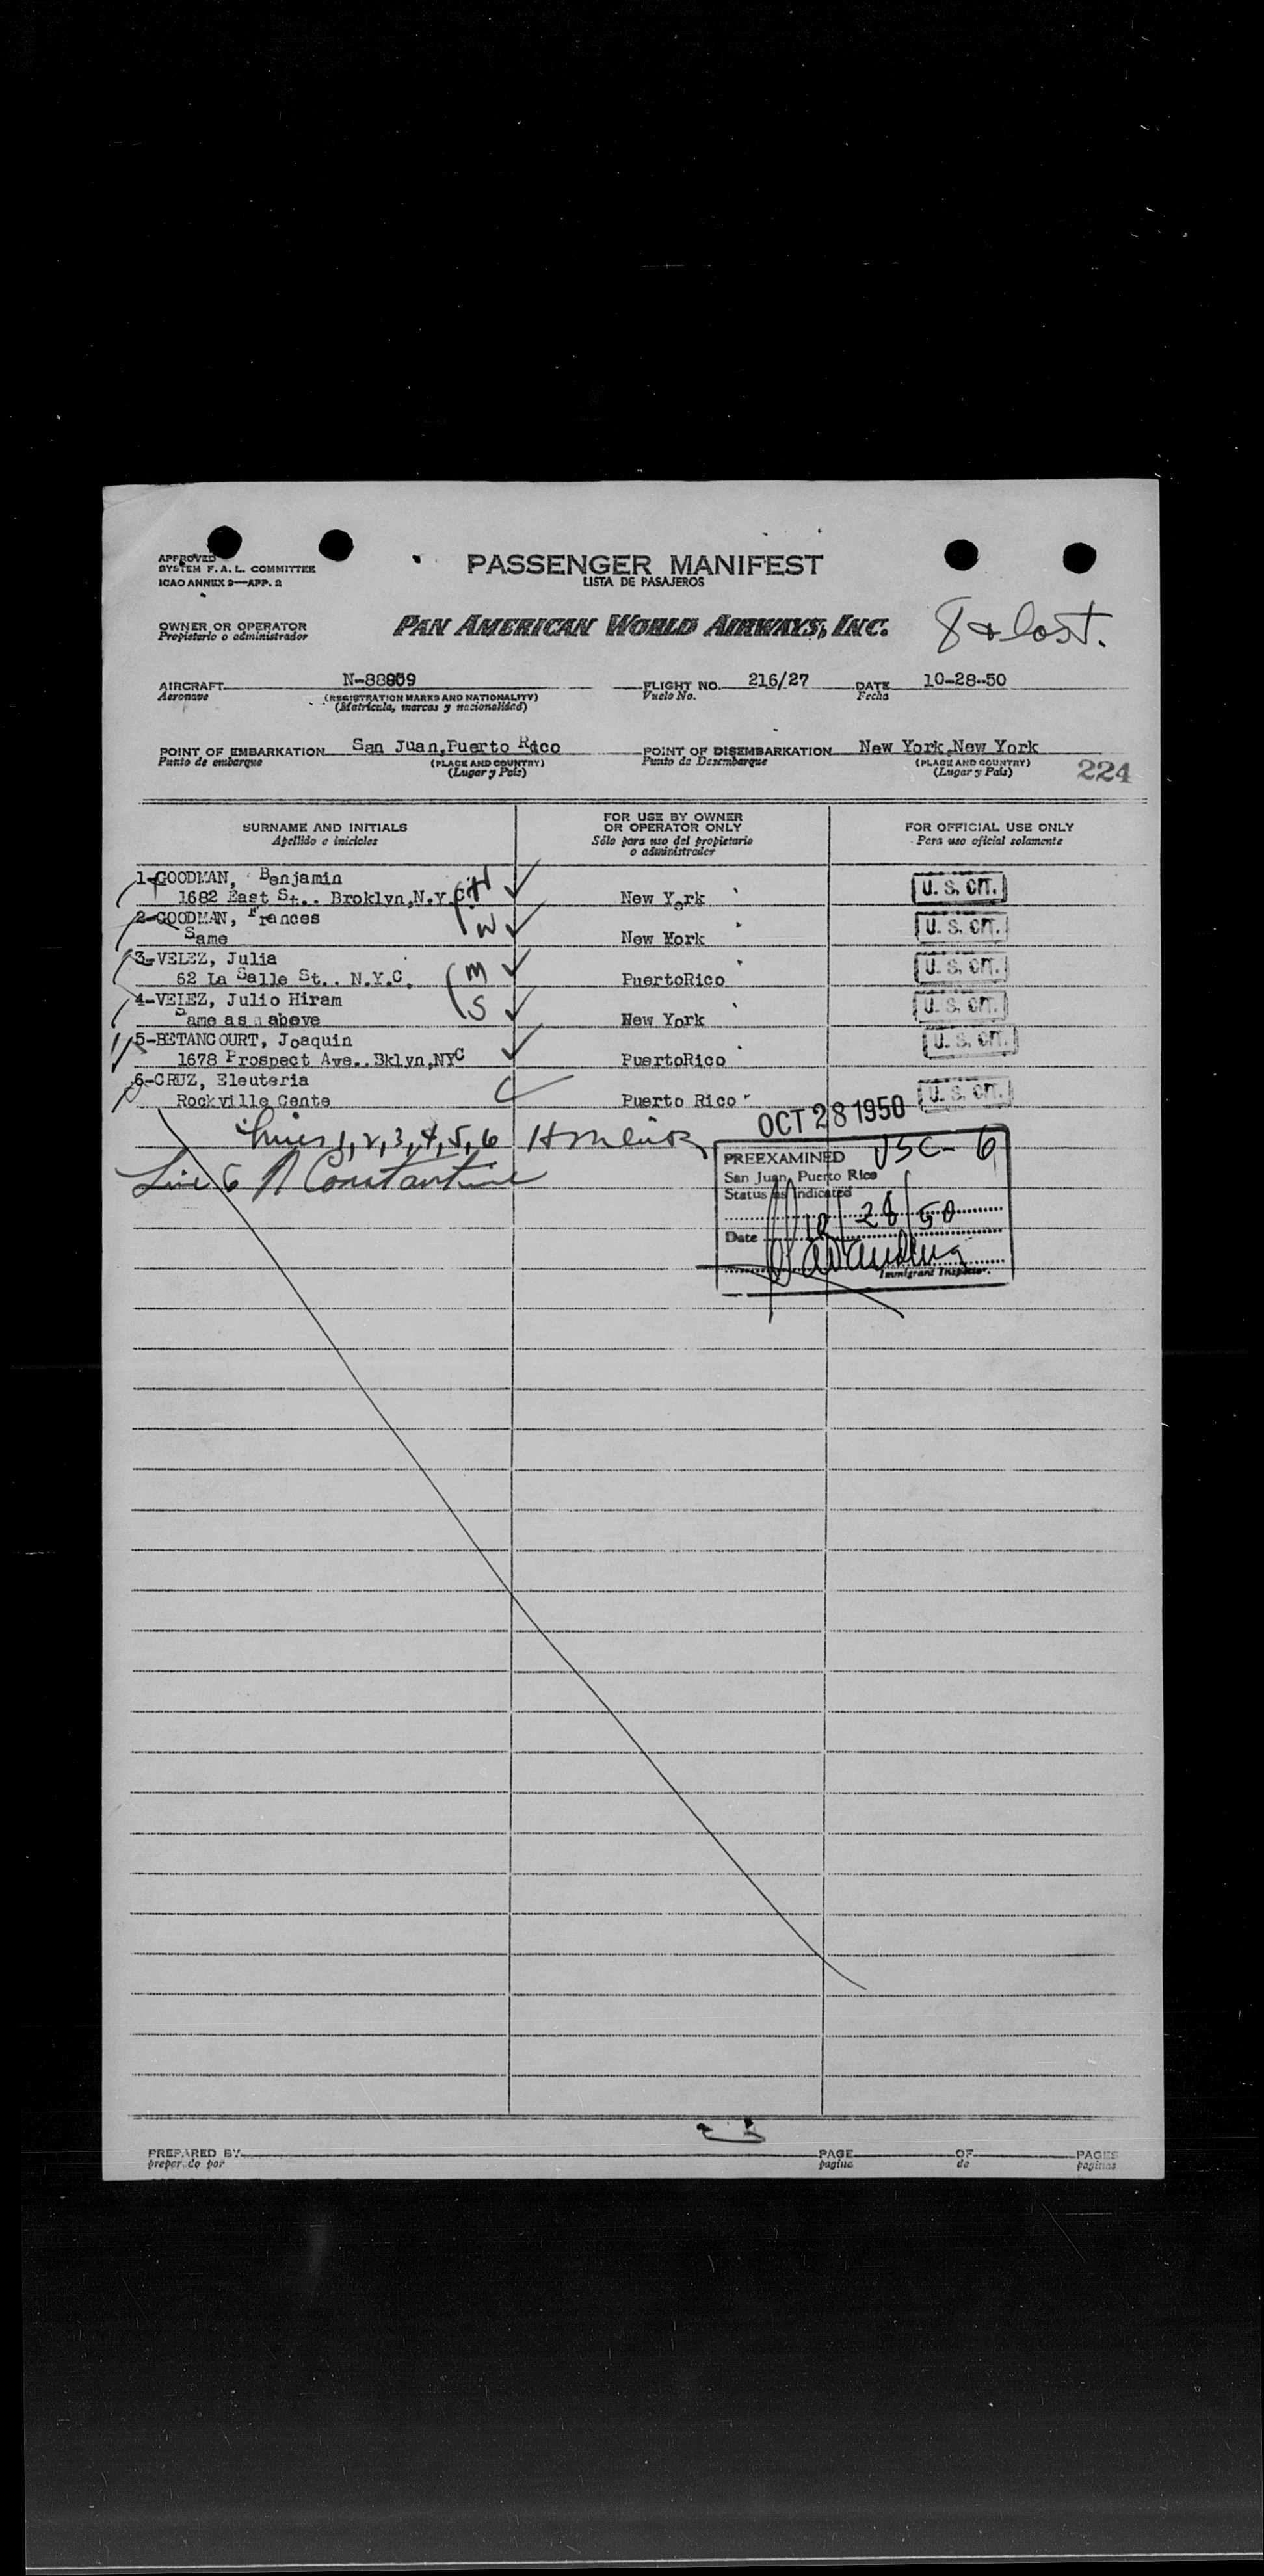 APPROVED
SYSTEM F. A. L. COMMITTEE
ICAO ANNEX 9—APP. 2
PASSENGER MANIFEST
LISTA DE PASAJEROS
OWNER OR OPERATOR
Propietario o administrador
PAN AMERICAN WORLD AIRWAYS, INC.
8 & last.
AIRCRAFT N-88959 FLIGHT NO. 216/27 DATE 10-28-50
Aeronave (REGISTRATION MARKS AND NATIONALITY) Vuelo No. Fecha
(Matrícula, marcas y nacionalidad)
POINT OF EMBARKATION San Juan,Puerto Rico POINT OF DISEMBARKATION New York,New York
Punto de embarque (PLACE AND COUNTRY) Punto de Desembarque (PLACE AND COUNTRY)
(Lugar y País) (Lugar y País) 224
SURNAME AND INITIALS
Apellido e iniciales
FOR USE BY OWNER
OR OPERATOR ONLY
Sólo para uso del propietario
o administrador
FOR OFFICIAL USE ONLY
Para uso oficial solamente
1-GOODMAN, Benjamin H
1682 East St.. Broklyn,N.Y. New York U. S. CIT.
2-GOODMAN, Frances
Same W New York U. S. CIT.
3-VELEZ, Julia M
62 La Salle St.. N.Y.C. PuertoRico U. S. CIT.
4-VELEZ, Julio Hiram S
Same as above New York U. S. CIT.
5-BETANCOURT, Joaquin
1678 Prospect Ave..Bklyn,NYC PuertoRico U. S. CIT.
6-CRUZ, Eleuteria
Rockville Cente Puerto Rico U. S. CIT.
OCT 28 1950
Lines 1,2,3,4,5,6
Line 6 Constantine
PREEXAMINED USC-6
San Juan, Puerto Rico
Status as indicated
10/28/50
Date
Immigrant Inspector.
PREPARED BY PAGE OF PAGES
preparado por pagina de paginas